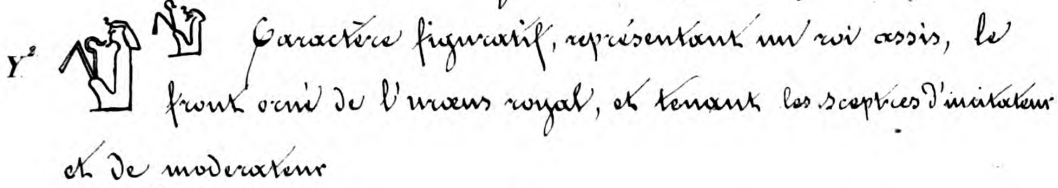 Y² Caractère figuratif, représentant un roi assis, le
front orné de l'uræus royal, et tenant les sceptres d'incitateur
et de moderateur